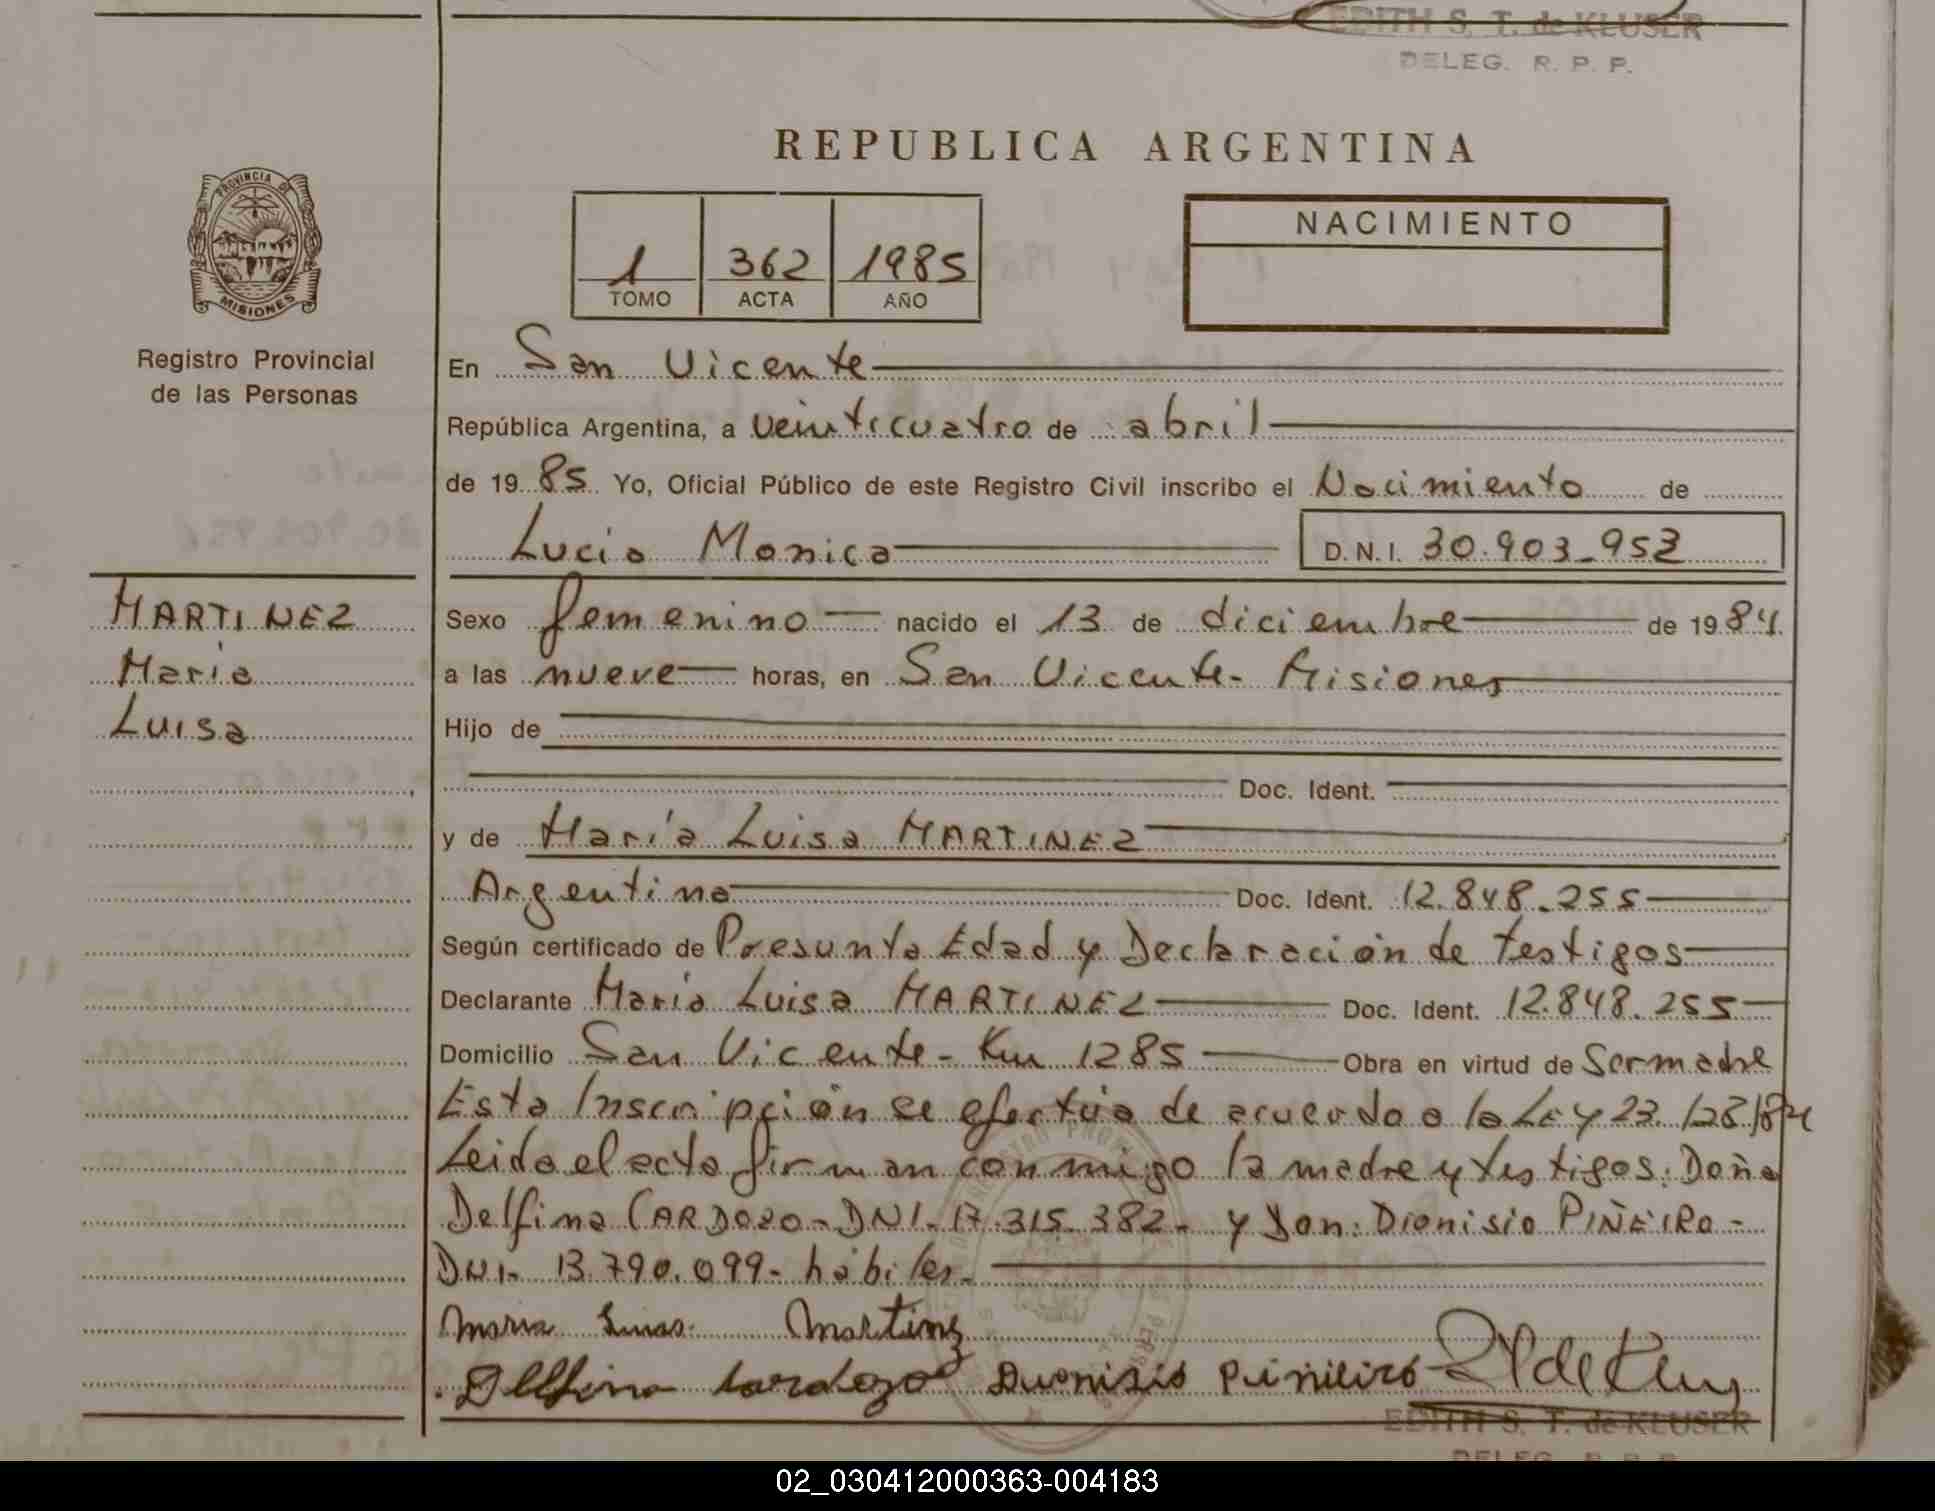 EDITH S. T. de KLUSER
DELEG. R. P. P.
REPUBLICA ARGENTINA
PROVINCIA DE
MISIONES
Registro Provincial
de las Personas
1 362 1985
TOMO ACTA AÑO
NACIMIENTO
En San Vicente
República Argentina, a veinticuatro de abril
de 1985 Yo, Oficial Público de este Registro Civil inscribo el Nacimiento de
Lucia Monica D.N.I. 30.903-952
MARTINEZ
Maria
Luisa
Sexo femenino nacido el 13 de diciembre de 1984
a las nueve horas, en San Vicente- Misiones
Hijo de
Doc. Ident.
y de María Luisa MARTINEZ
Argentina Doc. Ident. 12.848.255
Según certificado de Presunta Edad y Declaración de testigos
Declarante María Luisa MARTINEZ Doc. Ident. 12.848.255
Domicilio San Vicente- Km 1285 Obra en virtud de Ser madre
Esta Inscripción se efectúa de acuerdo a la LEY 23.128/84
Leida el acta firman conmigo la madre y testigos: Doña
Delfina CARDOZO-DNI-17.315.382- y Don: Dionisio PIÑEIRO-
DNI- 13.790.099- hábiles-
Maria Luisa Martinez
Delfina Cardozo Dionisio Piñeiro
EDITH S. T. de KLUSER
DELEG. R. P. P.
02_030412000363-004183